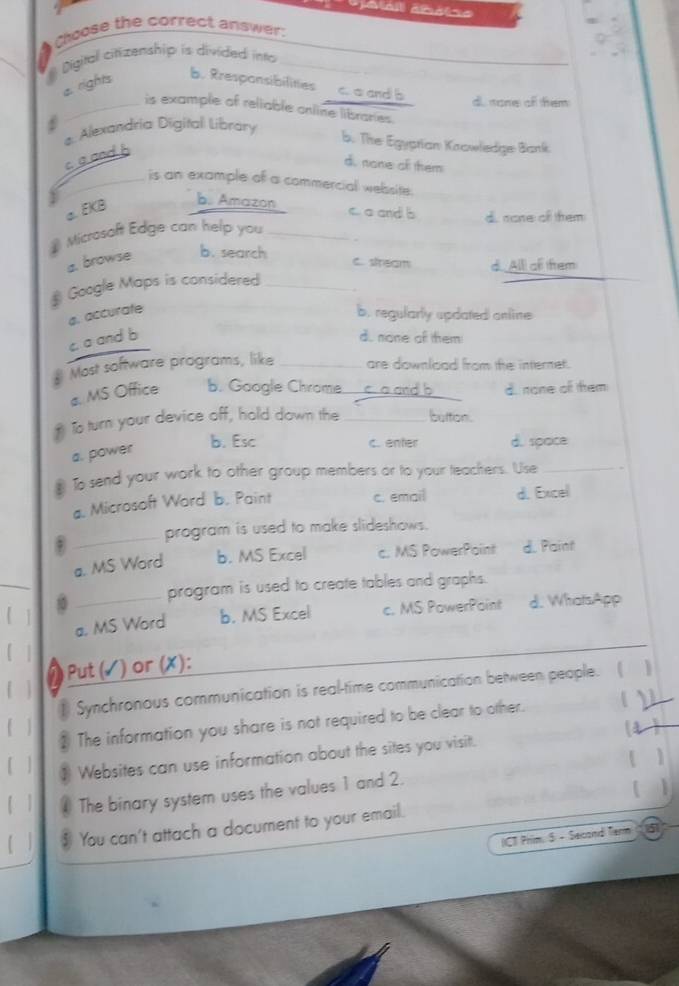 محافظة القاهرة
1 Choose the correct answer:
1 Digital citizenship is divided into ______
a. rights b. Rresponsibilities c. a and b d. none of them
2 ______ is example of reliable online libraries.
a. Alexandria Digital Library b. The Egyptian Knowledge Bank
c. a and b d. none of them
3 ______ is an example of a commercial website.
a. EKB b. Amazon c. a and b d. none of them
4 Microsoft Edge can help you ______.
a. browse b. search c. stream d. All of them
5 Google Maps is considered ______
a. accurate b. regularly updated online
c. a and b d. none of them
6 Most software programs, like ______ are download from the internet.
a. MS Office b. Google Chrome c. a and b d. none of them
7 To turn your device off, hold down the ______ button.
a. power b. Esc c. enter d. space
8 To send your work to other group members or to your teachers. Use ______.
a. Microsoft Word b. Paint c. email d. Excel
9 ______ program is used to make slideshows.
a. MS Word b. MS Excel c. MS PowerPoint d. Paint
10 ______ program is used to create tables and graphs.
a. MS Word b. MS Excel c. MS PowerPoint d. WhatsApp
2 Put (✓) or (✗):
1 Synchronous communication is real-time communication between people. ( )
2 The information you share is not required to be clear to other. ( )
3 Websites can use information about the sites you visit. ( )
4 The binary system uses the values 1 and 2. ( )
5 You can't attach a document to your email. ( )
ICT Prim. 5 - Second Term 151